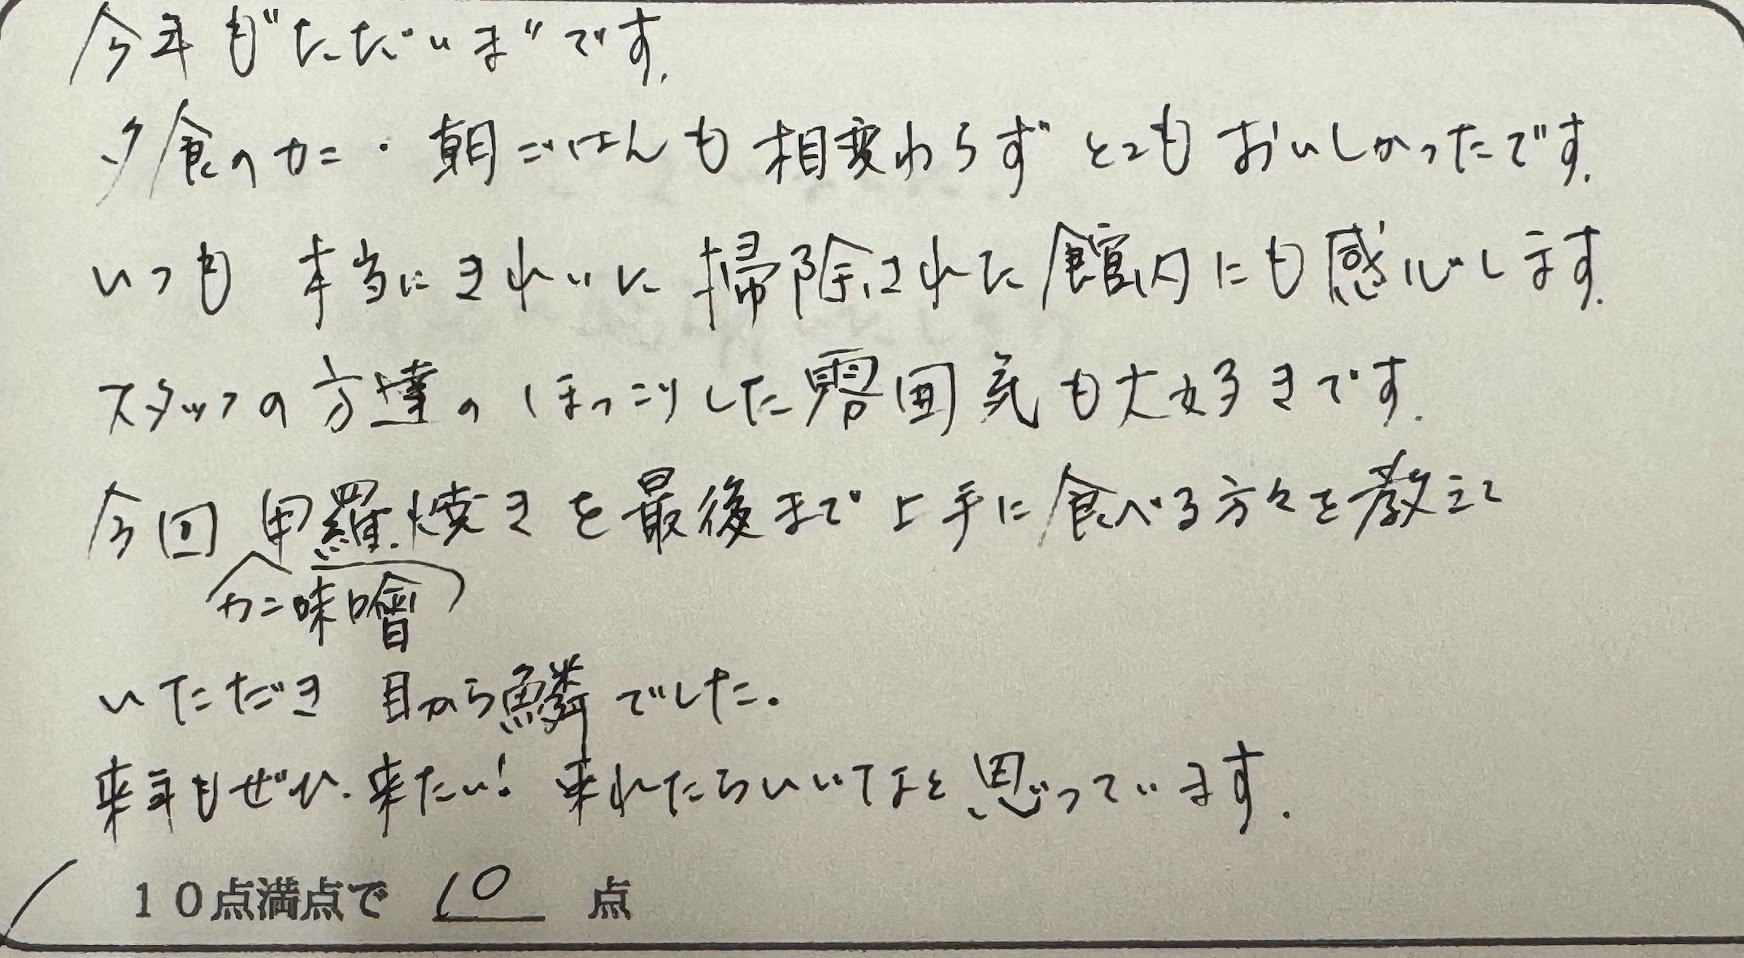 今年も"ただいま"です.
夕食のカニ・朝ごはんも相変わらずとてもおいしかったです.
いつも本当にきれいに掃除された館内にも感心します.
スタッフの方達のほっこりした雰囲気も大好きです.
今回甲羅焼きを最後まで上手に食べる方々を教えて
(カニ味噌)
いただき目から鱗でした.
来年もぜひ.来たい!来れたらいいなと思っています.
10点満点で 10 点